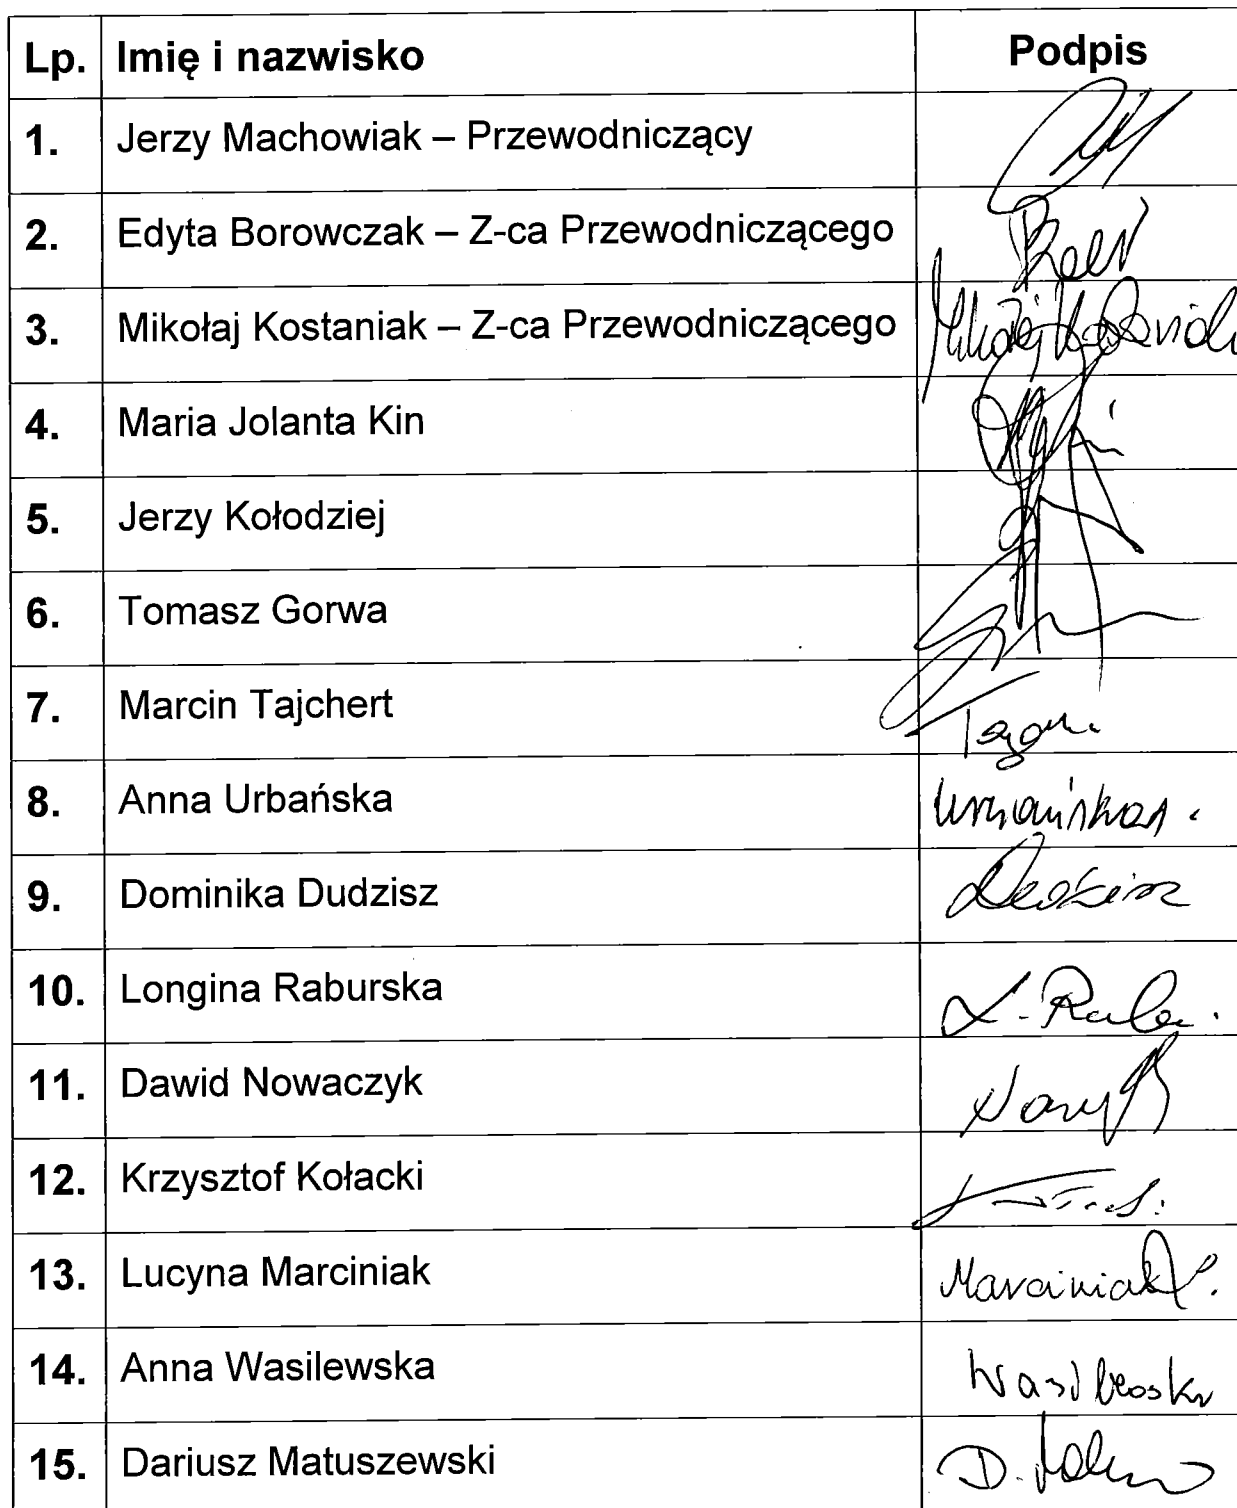 Lp. Imię i nazwisko Podpis
1. Jerzy Machowiak – Przewodniczący
2. Edyta Borowczak – Z-ca Przewodniczącego
3. Mikołaj Kostaniak – Z-ca Przewodniczącego Mikołaj Kostaniak
4. Maria Jolanta Kin
5. Jerzy Kołodziej
6. Tomasz Gorwa
7. Marcin Tajchert
8. Anna Urbańska Urbańska
9. Dominika Dudzisz Dudzisz
10. Longina Raburska
11. Dawid Nowaczyk
12. Krzysztof Kołacki
13. Lucyna Marciniak Marciniak
14. Anna Wasilewska Wasilewska
15. Dariusz Matuszewski D.